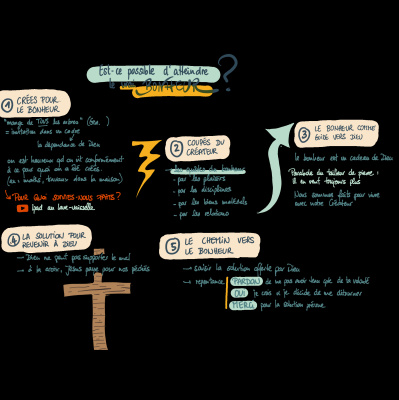 Est-ce possible d'atteindre
le vrai BONHEUR ?
1 CRÉES POUR
LE BONHEUR
"mange de TOUS les arbres" (Gen. )
= invitation dans un cadre
la dépendance de Dieu
on est heureux qd on vit conformément
à ce pour quoi on a été créés
↳ POUR QUOI SOMMES-NOUS FAITS ?
Ipad au lave-vaisselle
2 COUPÉS DU
CRÉATEUR
- par les plaisirs
- par les disciplines
- par les biens matériels
- par les relations
3 LE BONHEUR COMME
GUIDE VERS DIEU
le bonheur est un cadeau de Dieu
Parabole du tailleur de pierre :
il en veut toujours plus
Nous sommes faits pour vivre
avec notre Créateur
4 LA SOLUTION POUR
REVENIR À DIEU
→ Dieu ne peut pas supporter le mal
→ à la croix, Jésus paye pour nos péchés
5 LE CHEMIN VERS
LE BONHEUR
→ saisir la solution offerte par Dieu
→ repentance PARDON de ne pas avoir tenu cpte de ta volonté
OUI je crois et je décide de me détourner
MERCI pour la solution